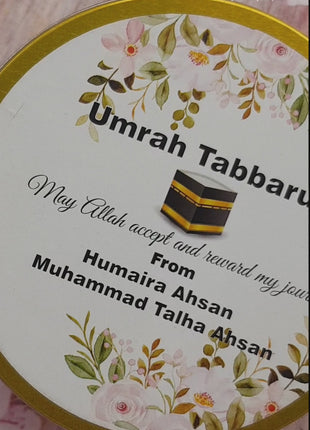 Umrah Tabbaru
May Allah accept and reward my jour
From
Humaira Ahsan
Muhammad Talha Ahsan